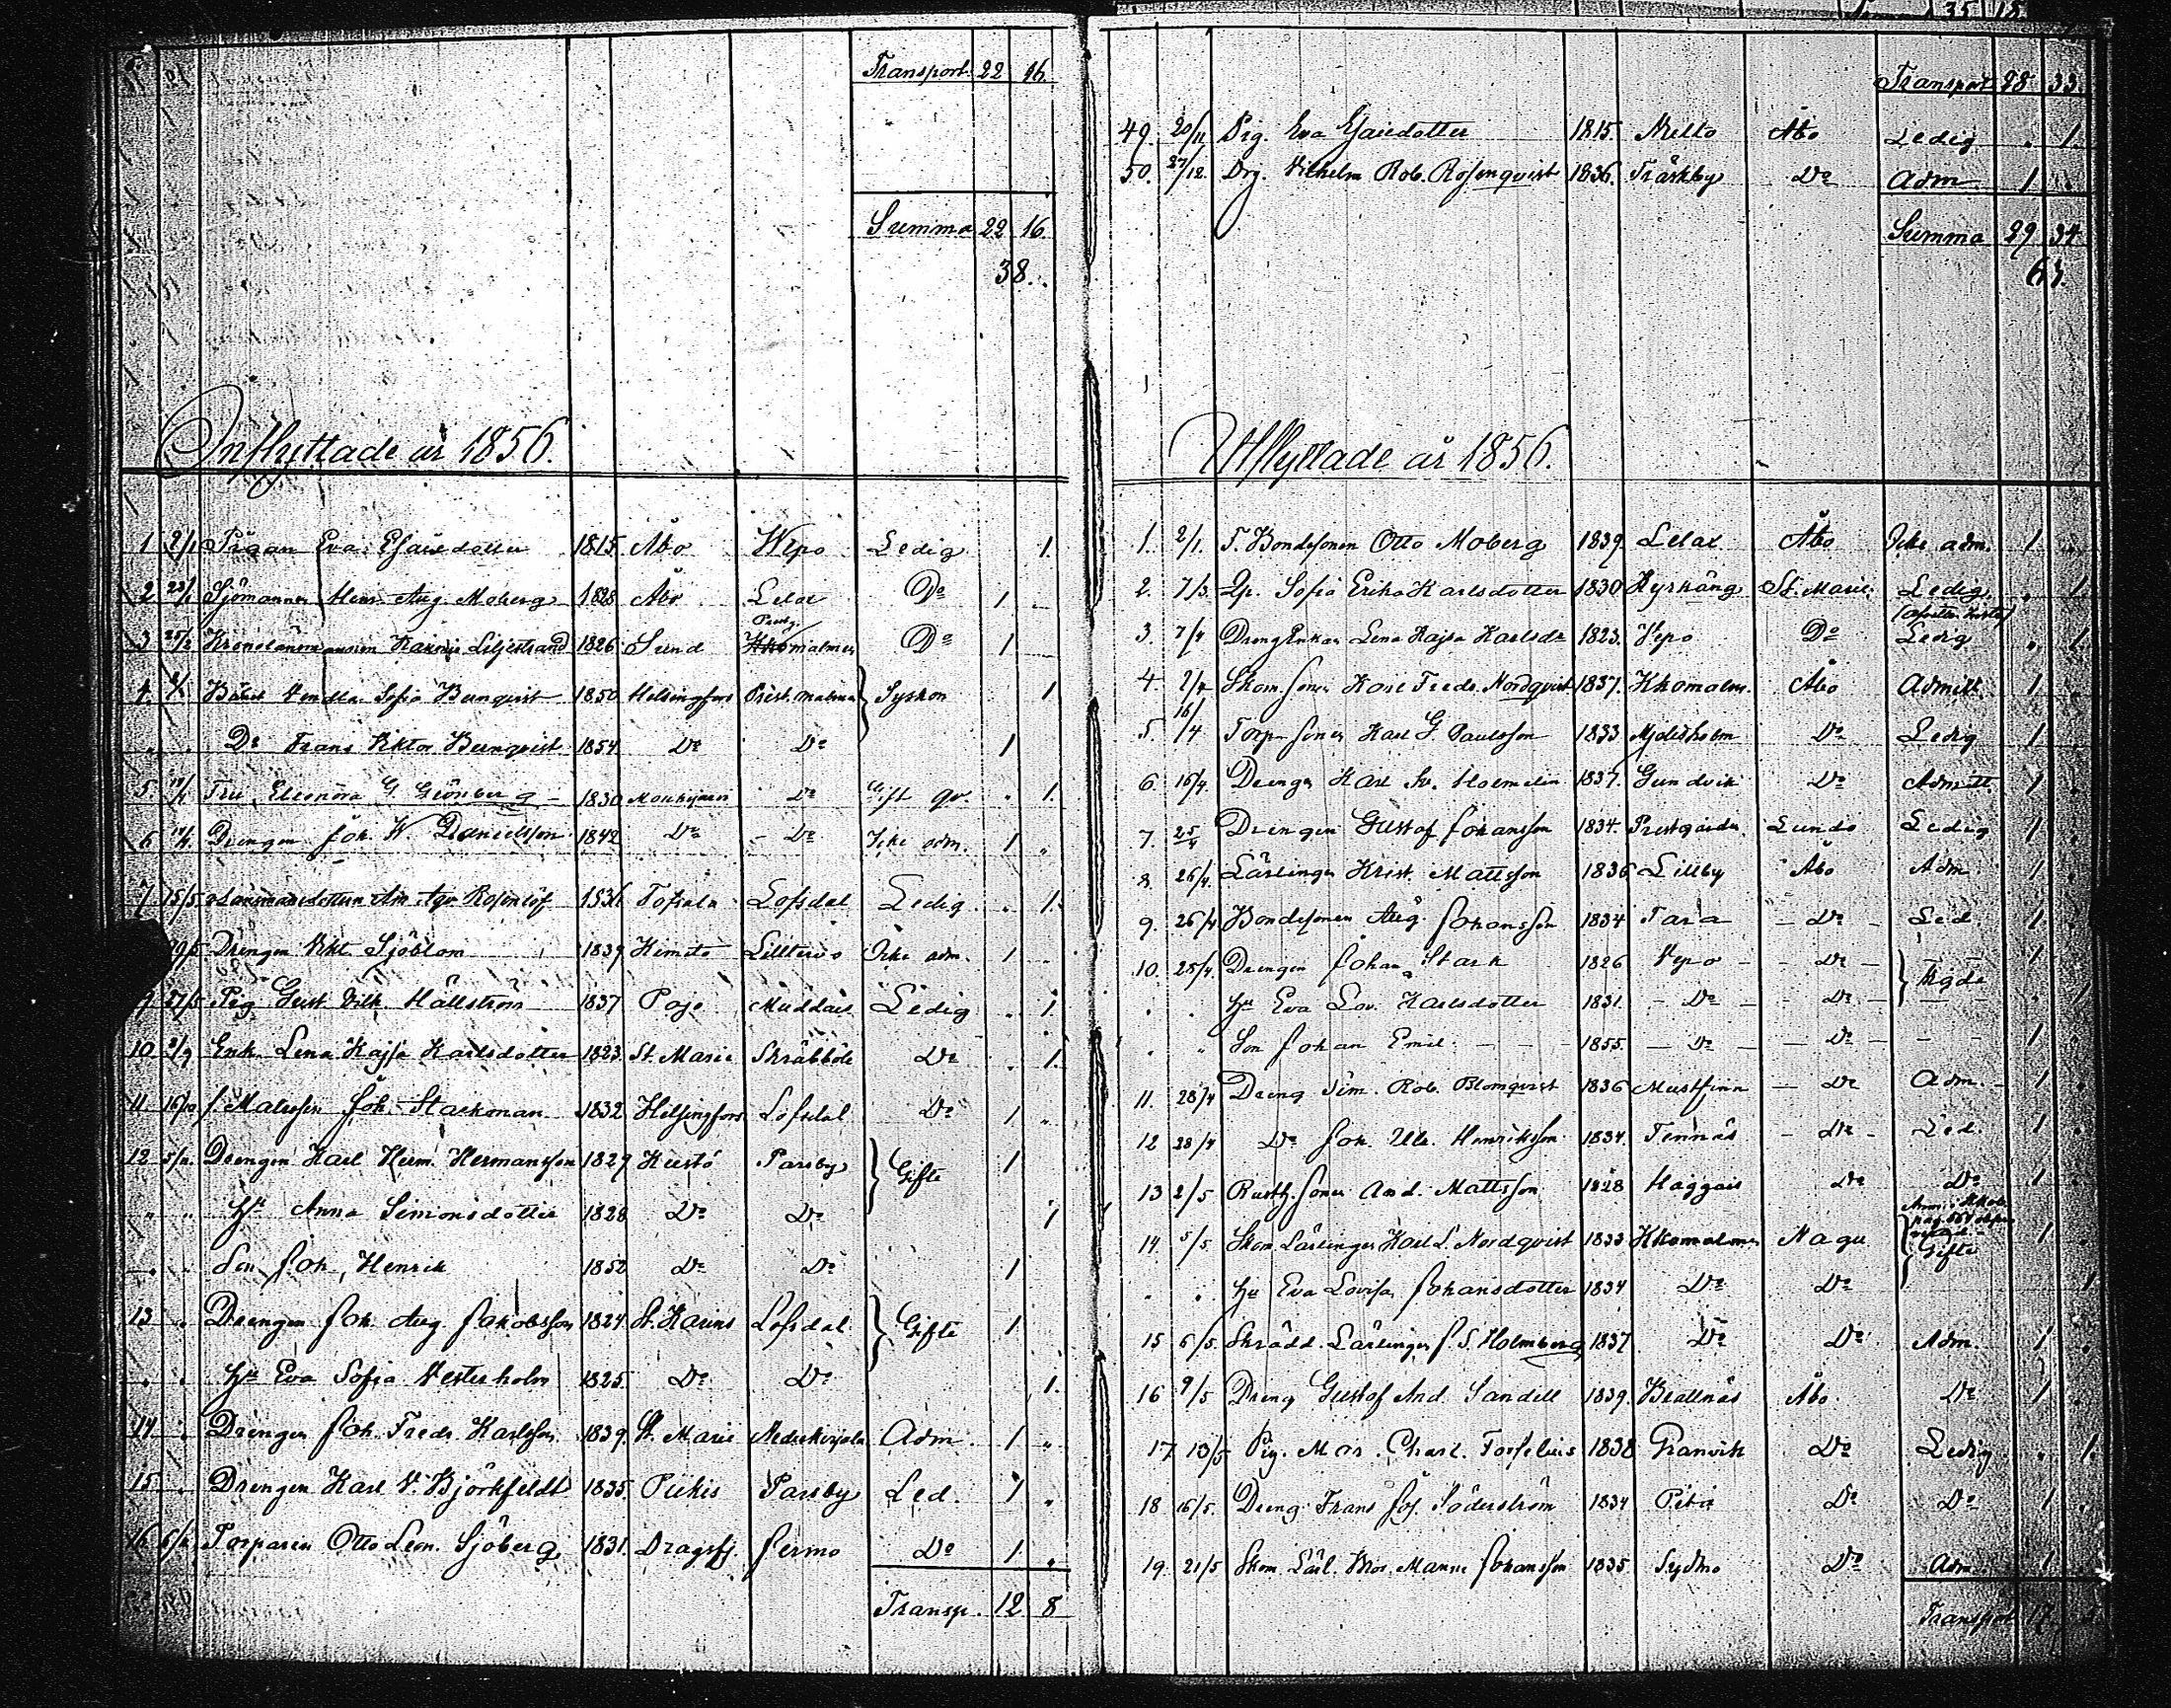 Transport 22 16.
Summa 22 16.
38.
Inflyttade år 1856.
1 2/1 Pigan Eva Esaiedotter 1815. Åbo Wepo Ledig 1.
2 23/1 Sjömannen Henr. Aug. Moberg 1828 Åbo Lelax Do 1
3 25/2 Kronolänsmannen Liljestrand 1826 Sund malmen Do 1
4. Vendla Sofia Bernqvist 1850 Helsingfors Prest. malmen Syskon 1.
" " Do Frans Viktor Bernqvist 1854 Do Do 1
5. Fru Eleonora G. Grönberg 1830 Do Gift qv. 1.
6 Drengen Joh. W. Danielsson 1842 Do Do Icke adm. 1 "
7 15/5 Rosenlöf 1836 Tofsala Lofsdal Ledig 1.
Drengen Vikt. Sjöblom 1839 Kimito Lilltervo Icke adm. 1
Pig. Gust. Vilh. Hällström 1837 Pojo Muddais Ledig 1.
10 2/9 Enk. Lena Kajsa Karlsdotter 1823. St. Marie Skräbböle Do 1.
11. 16/10 Joh. Stackman 1832 Helsingfors Lofsdal Do 1 "
12 5/11. Drengen Karl Herm. Hermansson 1829 Kustö Parsby Gifte 1
" " Hu Anna Simonsdotter 1828 Do Do 1
" " Son Joh. Henrik 1852 Do Do 1
13 " Drengen Joh. Aug. Jakobsson 1824 St. Karins Lofsdal Gifte 1
" " Hu Eva Sofia Vesterholm 1825. Do Do 1.
14 " Drengen Joh. Fredr. Karlsson 1839. St. Marie Nederkirjala Adm. 1 "
15. " Drengen Karl V. Björkfeldt 1835. Pikis Parsby Led. 1 "
16 Torparen Otto Leon. Sjöberg 1831. Dragsfj. Jermo Do 1 "
Transp. 12 8
Transport 28 33.
49. 20/11 Pig. Eva Esaiedotter 1815. Mello Åbo Ledig 1.
50. 27/12. Drg. Vilhelm Rob. Rosenqvist 1836. Träskby Do Adm 1
Summa 29 34
63.
Utflyttade år 1856.
1. 2/1. T. Bondesonen Otto Moberg 1839 Lelax Åbo Icke adm. 1
2. 7/3. Sofia Erika Karlsdotter 1830 Kyrkäng St. Marie Ledig 1
3. 7/4 Drengenkan Lena Kajsa Karlsdr 1823. Vepo Do Ledig 1.
4. 2/4 Skom. sonen Karl Fredr. Nordqvist 1837. Kkomalm. Åbo Admitt. 1
5. 16/4 Torp. sonen Karl G. Paulsson 1833 Mjelisholm Do Ledig 1
6. 16/4. Drengen Karl 1837. Gundvik Do Admitt. 1
7. 25/4 Drengen Gustaf Johansson 1834. Prestgården Lundo Ledig 1
8. 26/4. Lärlingen Krist. Mattsson 1836 Lillby Åbo Adm. 1
9. 26/4 Bondesonen Aug. Johansson 1834 Tara Do Led. 1
10. 28/4. Drengen Johan Stark 1826 Vepo Do Bgde 1
" " Hu Eva Lov. Karlsdotter 1831. Do Do 1
" " Son Johan Emil 1855. Do Do 1
11. 28/4 Dreng Sim. Rob. Blomqvist 1836 Mustfinn Do Adm. 1
12 28/4 Do Joh. Ulr. Henriksson 1834. Tennäs Do Led. 1
13 2/5 Rusth. sonen And. Mattsson 1828 Haggais Do Do 1
14. 5/5 Skom. Lärlingen Karl L. Nordqvist 1833 Kkomalmen Nagu Gifte 1
" " Hu Eva Lovisa Johansdotter 1834 Do Do 1
15 6/5. Skrädd. Lärlingen J. S. Holmberg 1837 Do Do Adm. 1
16 9/5 Dreng Gustaf And. Sandell 1839. Brallnäs Åbo Do 1
17 13/5 Pig. Mar. Charl. Forselius 1838 Granvik Do Ledig 1.
18 16/5. Dreng Frans Jos. Söderström 1834 Do Do 1
19. 21/5 Skom. Lärl. Manne Johansson 1835 Sydmo Do Adm. 1
Transport 17